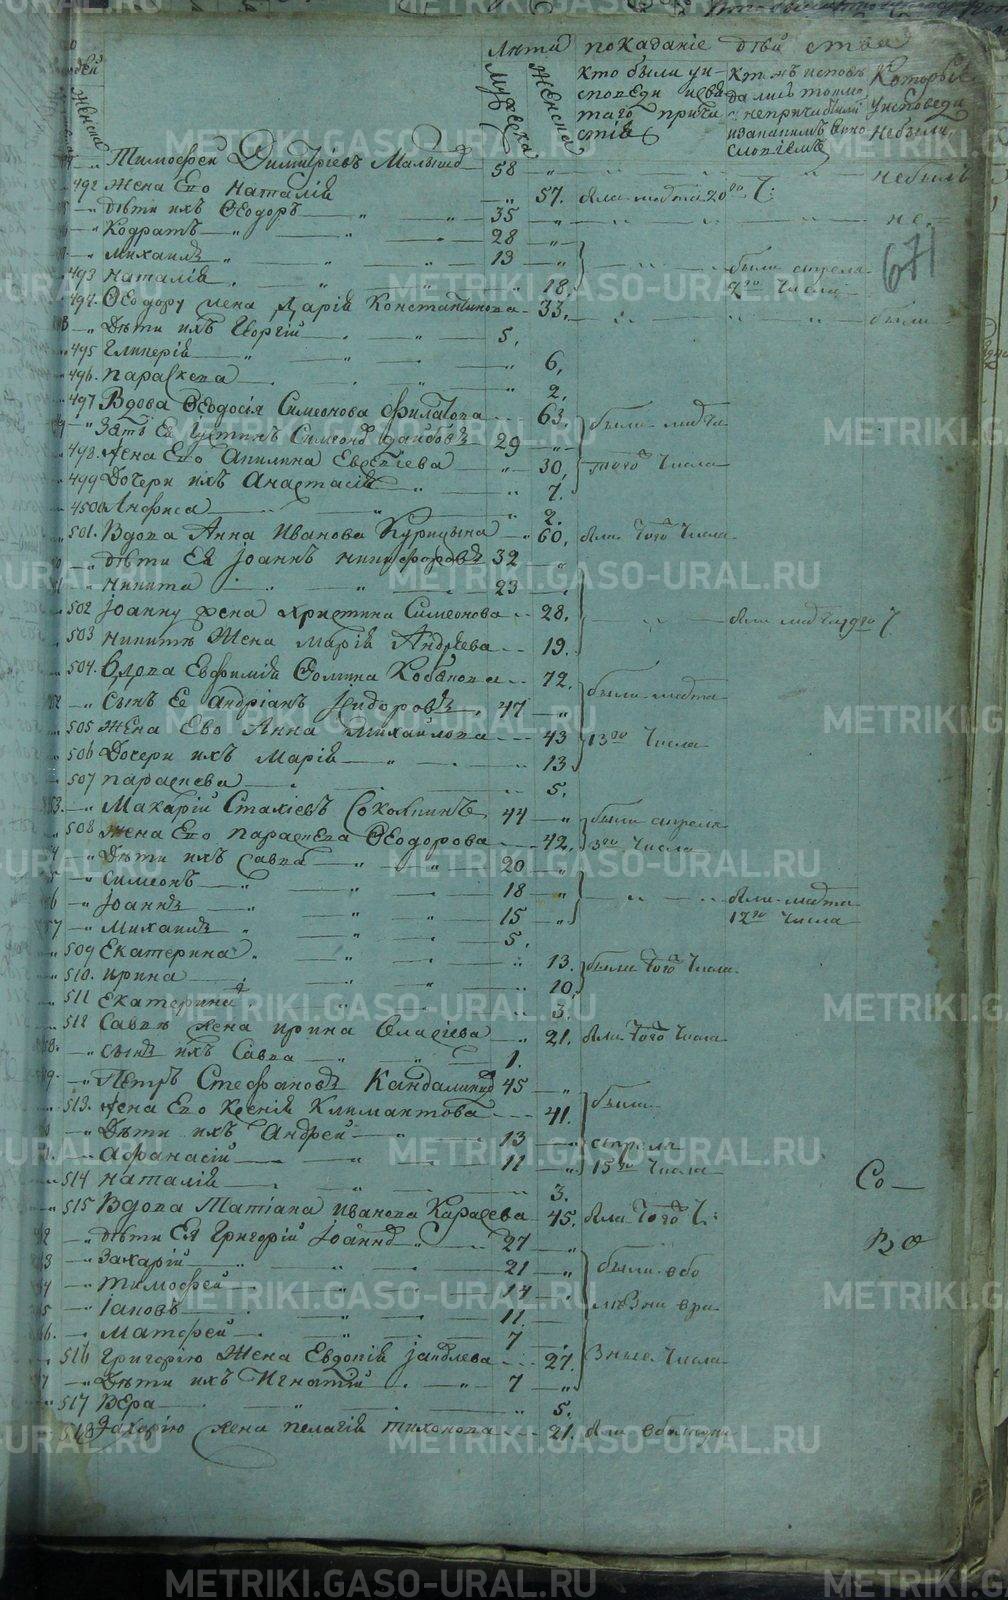 Лѣта показаніе дѣйства
людей
Мужеска
Женска
Женска
кто были у исповеди и свѣтаго причастія
кт мъ исповѣдались токмо а непричастились и за какимъ винословіемъ
Которые у исповеди небыли
Тимофей Димитріевъ Малышев 58 небылъ
492 жена Ево Наталія 57. была марта 20го Ч:
дѣти ихъ Ѳеодоръ 35 не.
Кодратъ 28
Михаилъ 13
671
493 Наталія 18, были апреля 7го числа
494. Ѳеодору жена Дарія Константинова 33, были
Дѣти ихъ Георгій 5,
495 Гликерія 6,
496. Параскева 2,
497 Вдова Ѳеодосія Симеонова Филатова 63. были марта
Зять Ея Іустинъ Симеонов 29
498. жена Ево Акилина Евсевіева 30, того числа
499 Дочери ихъ Анастасія 7.
4500 Анфиса 2.
501. Вдова Анна Иванова Курицына 60, была того числа
дѣти Ея Іоаннъ Никифоровъ 32
Никита 23
502 Іоанну жена Христина Симеонова 28. были марта 19го Ч
503 Никитѣ Жена Марія Андреева 19.
504. Вдова Евфимія Фомина 72. были марта
сынъ Ея Андріанъ Сидоровъ 47
505 Жена Ево Анна Михайлова 43 13го числа
506 Дочери ихъ Марія 13
507 Параскева 5.
Макарій Стахіевъ Соколкинъ 44 были апреля
508 жена Ево Параскева Ѳеодорова 42, 3го числа
Дѣти ихъ Савва 20
Симеонъ 18 были марта
Іоаннъ 15 12го числа
Михаилъ 5.
509 Екатерина 13. были того числа
510. Ирина 10,
511 Екатерина 3.
512 Саввѣ жена Ирина Власіева 21. была того числа
сынъ ихъ Савва 1.
Петръ Стефановъ Кандалинцов 45
513. жена Ево Ксенія Климантова 41. были
Дѣти ихъ Андрей 13 апреля
Афанасій 11 15го числа
514 Наталія 3. Со—
515 Вдова Татіана Иванова Карасева 45. была того Ч:
дѣти Ея Григорій Іоаннов 27 ВО
Захарій 21 были обо
Тимофей 14
Іаковъ 11
Матфей 7
516 Григорію Жена Евдокія Іаковлева 27. числа
Дѣти ихъ Игнатій 7
517 Вѣра 5.
518 Захарію жена Пелагія Тихонова 21. была
METRIKI.GASO-URAL.RU